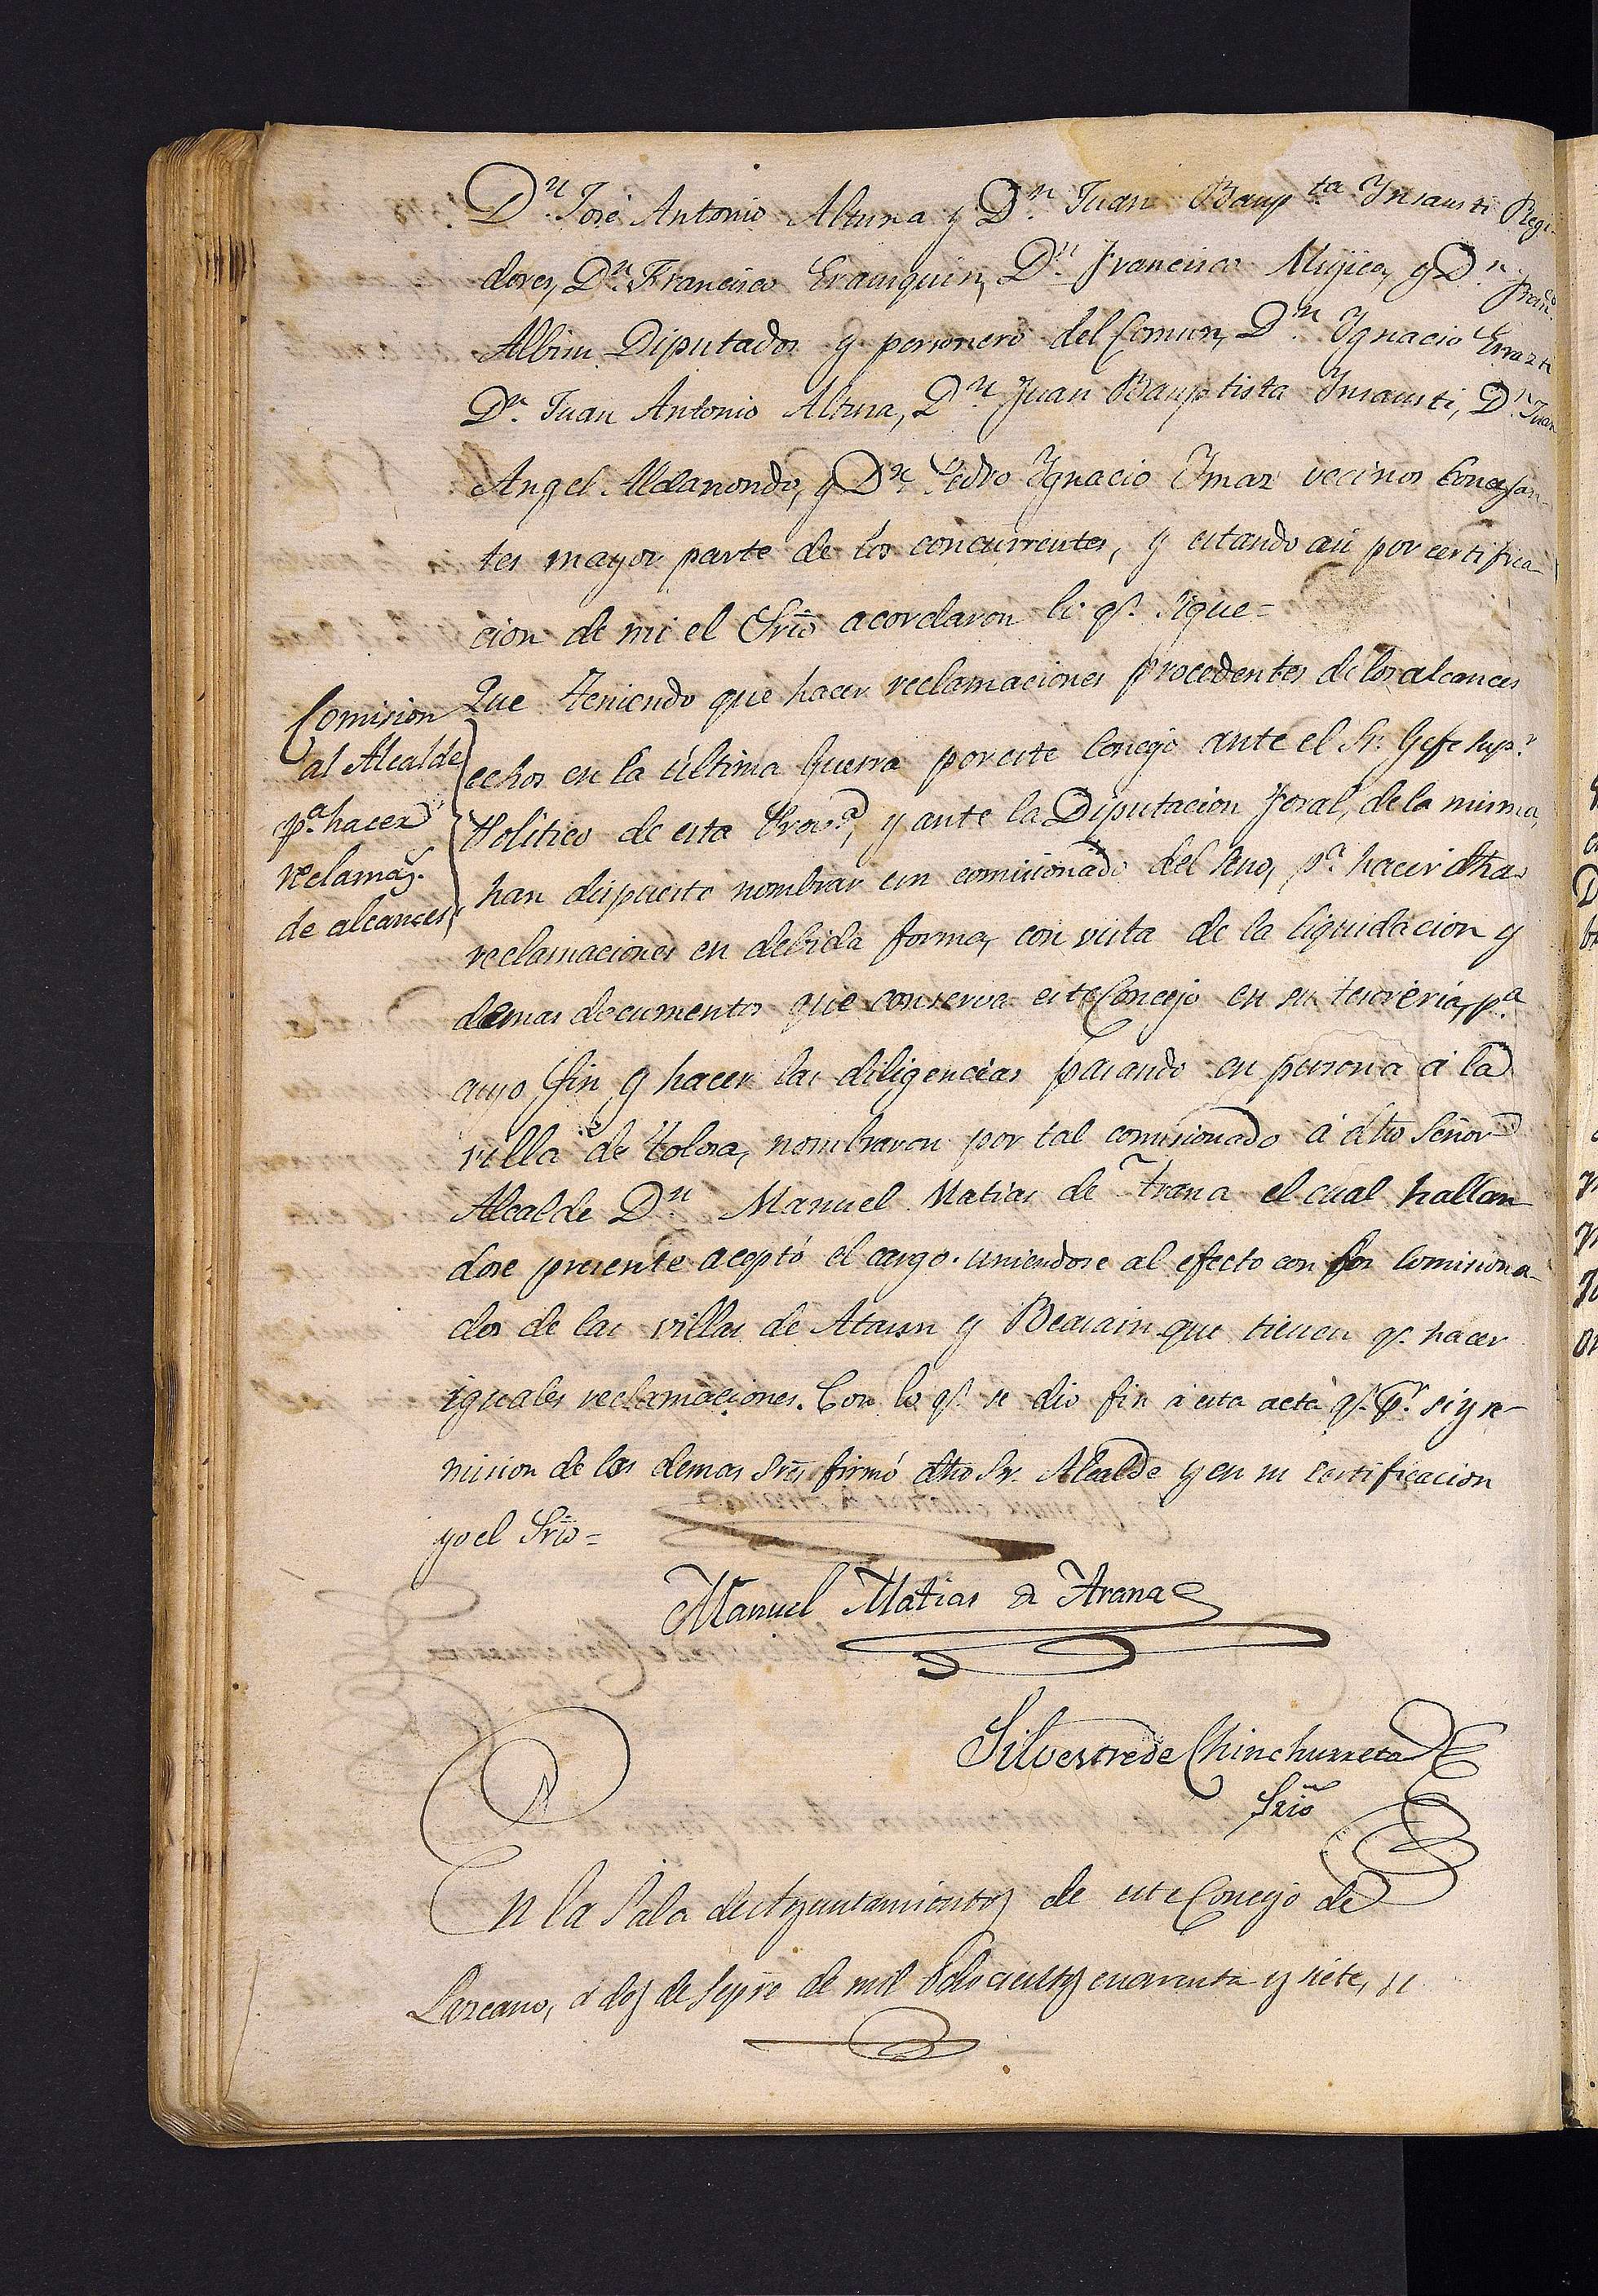 Dn. José Antonio Altuna y Dn. Juan Baupta. Ynsausti Regi-
dores, Dn. Francisco Erauzquin, Dn. Francisco Mujica, y Dn.
Albisu Diputados y personero del Comun, Dn. Ygnacio Errazti
Dn. Juan Antonio Altuna, Dn. Juan Bauptista Ynsausti, Dn. Juan
Angel Aldanondo, y Dn. Pedro Ygnacio Ymaz vecinos Concejan-
tes mayor parte de los concurrentes, y estando asi por certifica-
cion de mi el Srio acordaron lo qe. sigue=
Comision
al Alcalde
pa. hacer
reclamas.
de alcances
Que teniendo que hacer reclamaciones procedentes de los alcances
echos en la última Guerra por este Concejo ante el Sr. Gefe supr.
Político de esta Prova., y ante la Diputacion foral, de la misma,
han dispuesto nombrar un comisionado del seno, pa. hacer dhas
reclamaciones en debida forma, con vista de la liquidacion y
demas documentos que conserva este Concejo en su tesoreria, pa.
cuyo fin y hacer las diligencias pasando en persona á la
villa de Tolosa, nombraron por tal comisionado á dho Señor
Alcalde Dn. Manuel Matias de Arana el cual hallan-
dose presente aceptó el cargo. uniendose al efecto con los Comisiona-
dos de las villas de Ataun y Beasain que tienen qe. hacer
iguales reclamaciones. Con lo qe. se dio fin á esta acta qe. pr. si y re-
mision de los demas Sres firmó dho Sr. Alcalde y en su certificacion
yo el Srio=
Manuel Matias de Arana
Silvestre de Chinchurreta
Srio
En la Sala de Ayuntamientos de este Concejo de
Lazcano, á dos de sepre de mil ochocientos cuarenta y siete, se